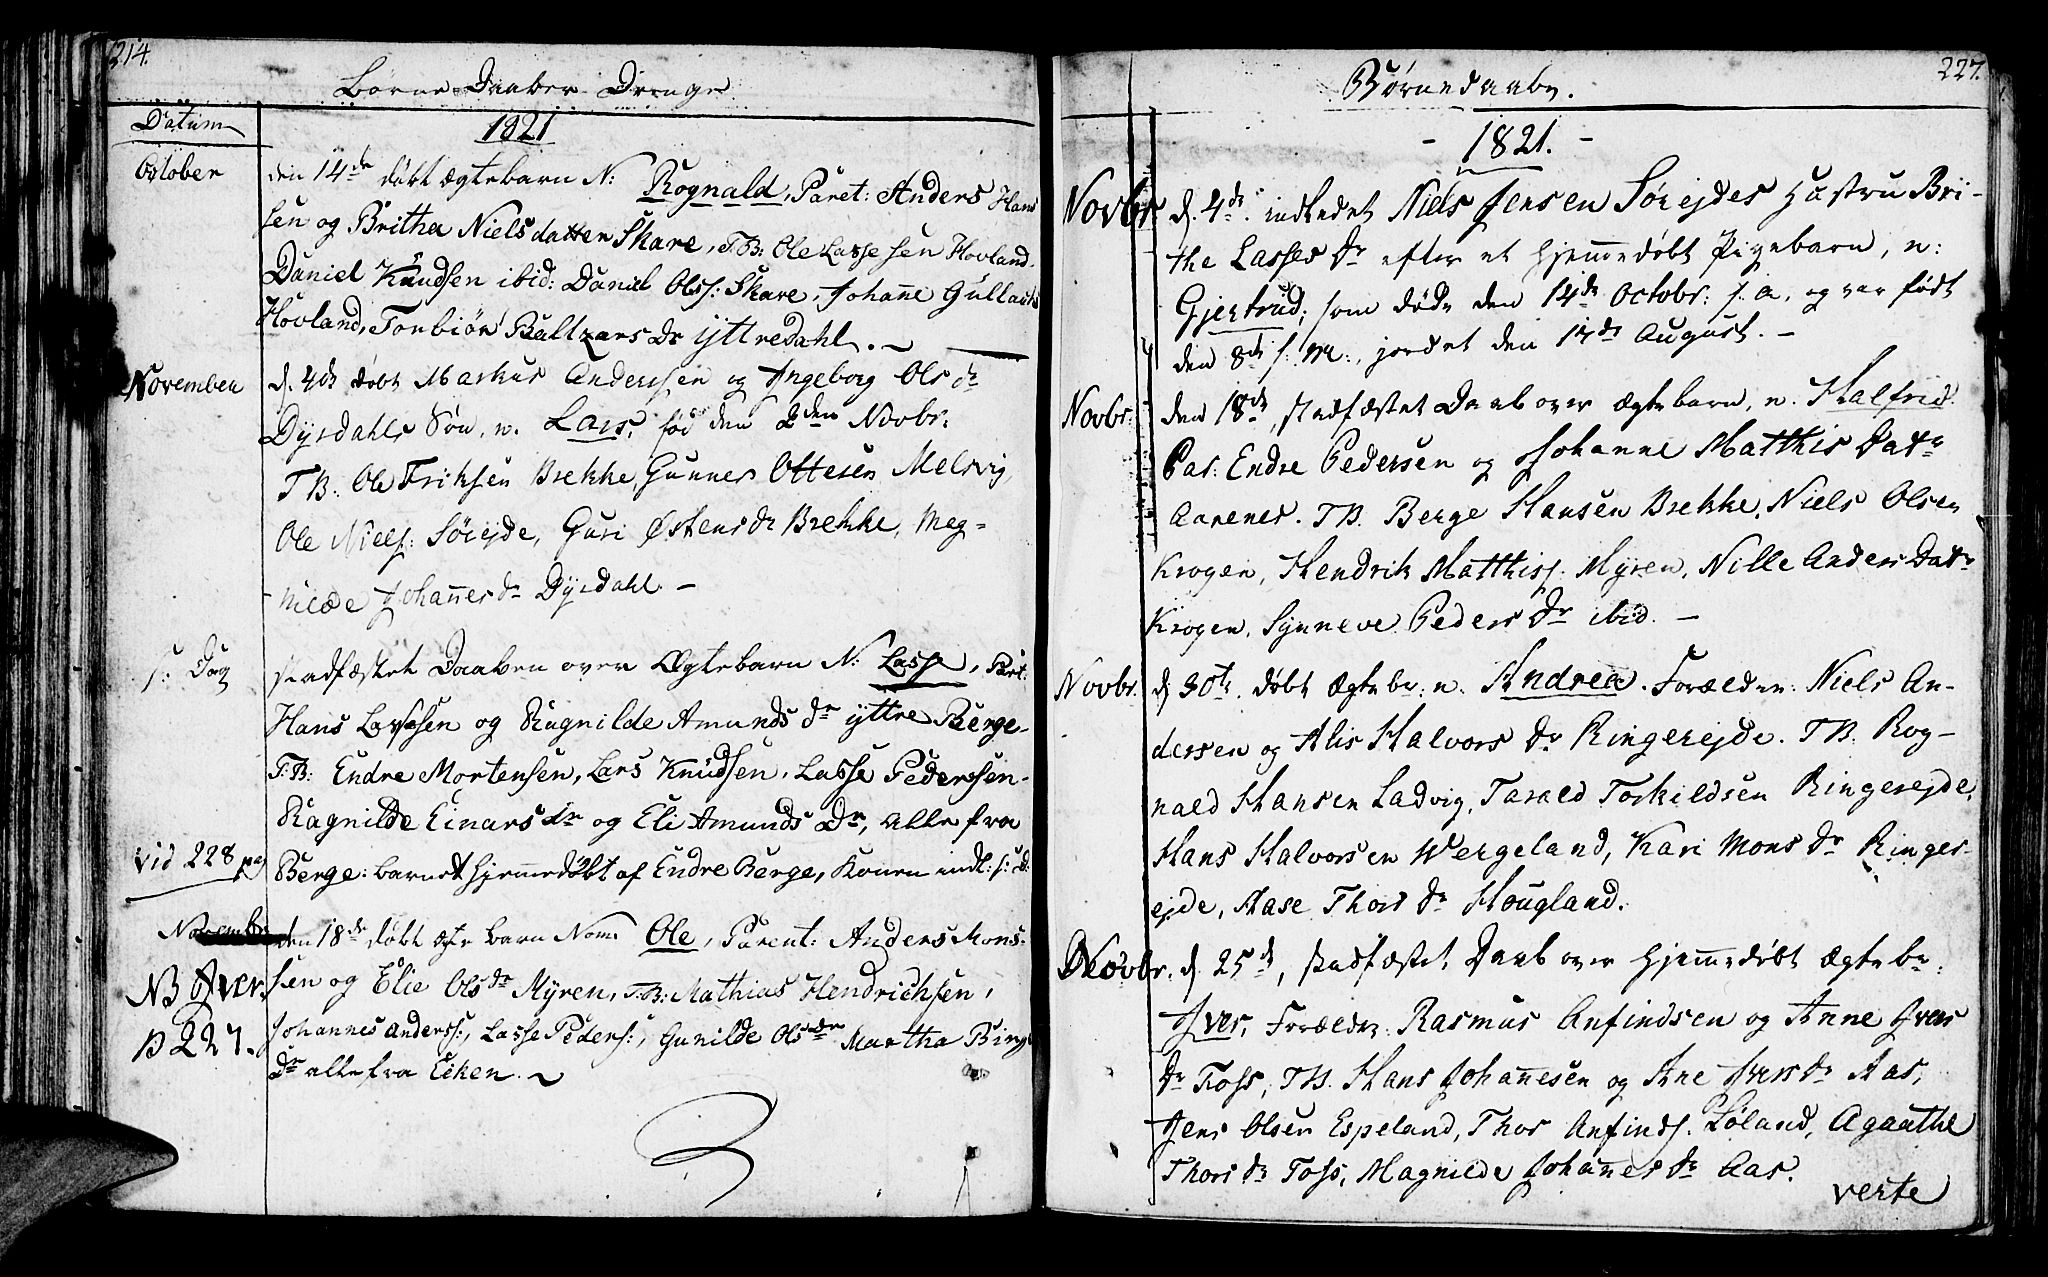 214.
Børne-Daaber Drenge
Datum
1821
October
den 14de døbt ægtebarn N: Rognald, Paret: Anders Hans
sen og Britha Nielsdatter Skare, T.B: Ole Lassesen Hovland
Daniel Knudsen ibid: Daniel Olss: Skare, Johane Gullachs
Hovland, Tonbiør Baltzars Dr yttredahl. ~
November
d. 4de døbt Markus Anderssen og Ingeborg Ols dr
Dysdahls Søn, n. Lars, fød den 2den Novbr:
T.B. Ole Eriksen Brekke, Gunner Ottesen Melsvig,
Ole Niels: Sørejde, Guri Østens dr Brekke, Meg-
nilde Johannes dr Dysdahl -
s: Dag
stadfæstet Daaben over Ægtebarn N: Lasse, Part:
Hans Larssen og Ragnilde Amunds dr yttre Berge-
T:B: Endre Mortensen, Lars Knudsen, Lasse Pederssen-
Ragnilde Einars dr og Eli Amunds Dr, alle fra
vid 228 pag
Berge: barnet hjemmedøbt af Endre Berge, Konen indl: s: d:
Novemb
den 18de døbt ægte barn Nom: Ole, Parent: Anders Mons-
sen og Elie Ols dr Myren, T.B: Mathias Hendrichsen,
NB Iver
p 227.
Johannes Anderss:, Lasse Peders:, Gunilde Ols dr Martha Birg
Dr alle fra Eiken. ~
227.
Børnedaaby.
- 1821. -
Novbr
d. 4de. indledet Niels Jensen Sørejdes Hustru Bri-
the Lasses Dr efter et hjemmedøbt Pigebarn, n:
Gjertrud, som døde den 14de Octobr: s. a. og var født
den 8de s. m:, jordet den 17de August. -
Novbr:
den 18de, stadfæstet Daab over ægtebarn, n. Halfrid.
Par: Endre Pedersen og Johanne Matthis Datr
Aarenes. T.B. Berge Hansen Brekke, Niels Olsen
Krogen, Hendrik Matthiss. Myren, Nille Anders Datr
Krogen, Synneve Peders Dr ibid. -
Novbr.
d. 30te. døbt Ægte br: n. Andrea. Forældre: Niels An-
dersen og Alis Halvors Dr Ringerejde. T.B. Rog-
nald Hansen Ladvig, Tarald Torkildsen Ringerejde,
Hans Halvorsen Wergeland, Kari Mons Dr Ringer-
ejde, Aase Thors Dr Hougland.
Novbr.
d. 25d, stadfæstet Daab over hjemmedøbt Ægte br:
Iver, Forældr: Rasmus Anfindsen og Anne Ivers
Dr Foss, T.B. Hans Johanesen og Ane Ivers Dr Aas,
Jens Olsen Espeland, Thor Anfinds. Løland, Agaathe
Thors Dr Foss, Magnilde Johanes Dr Aas.
verte